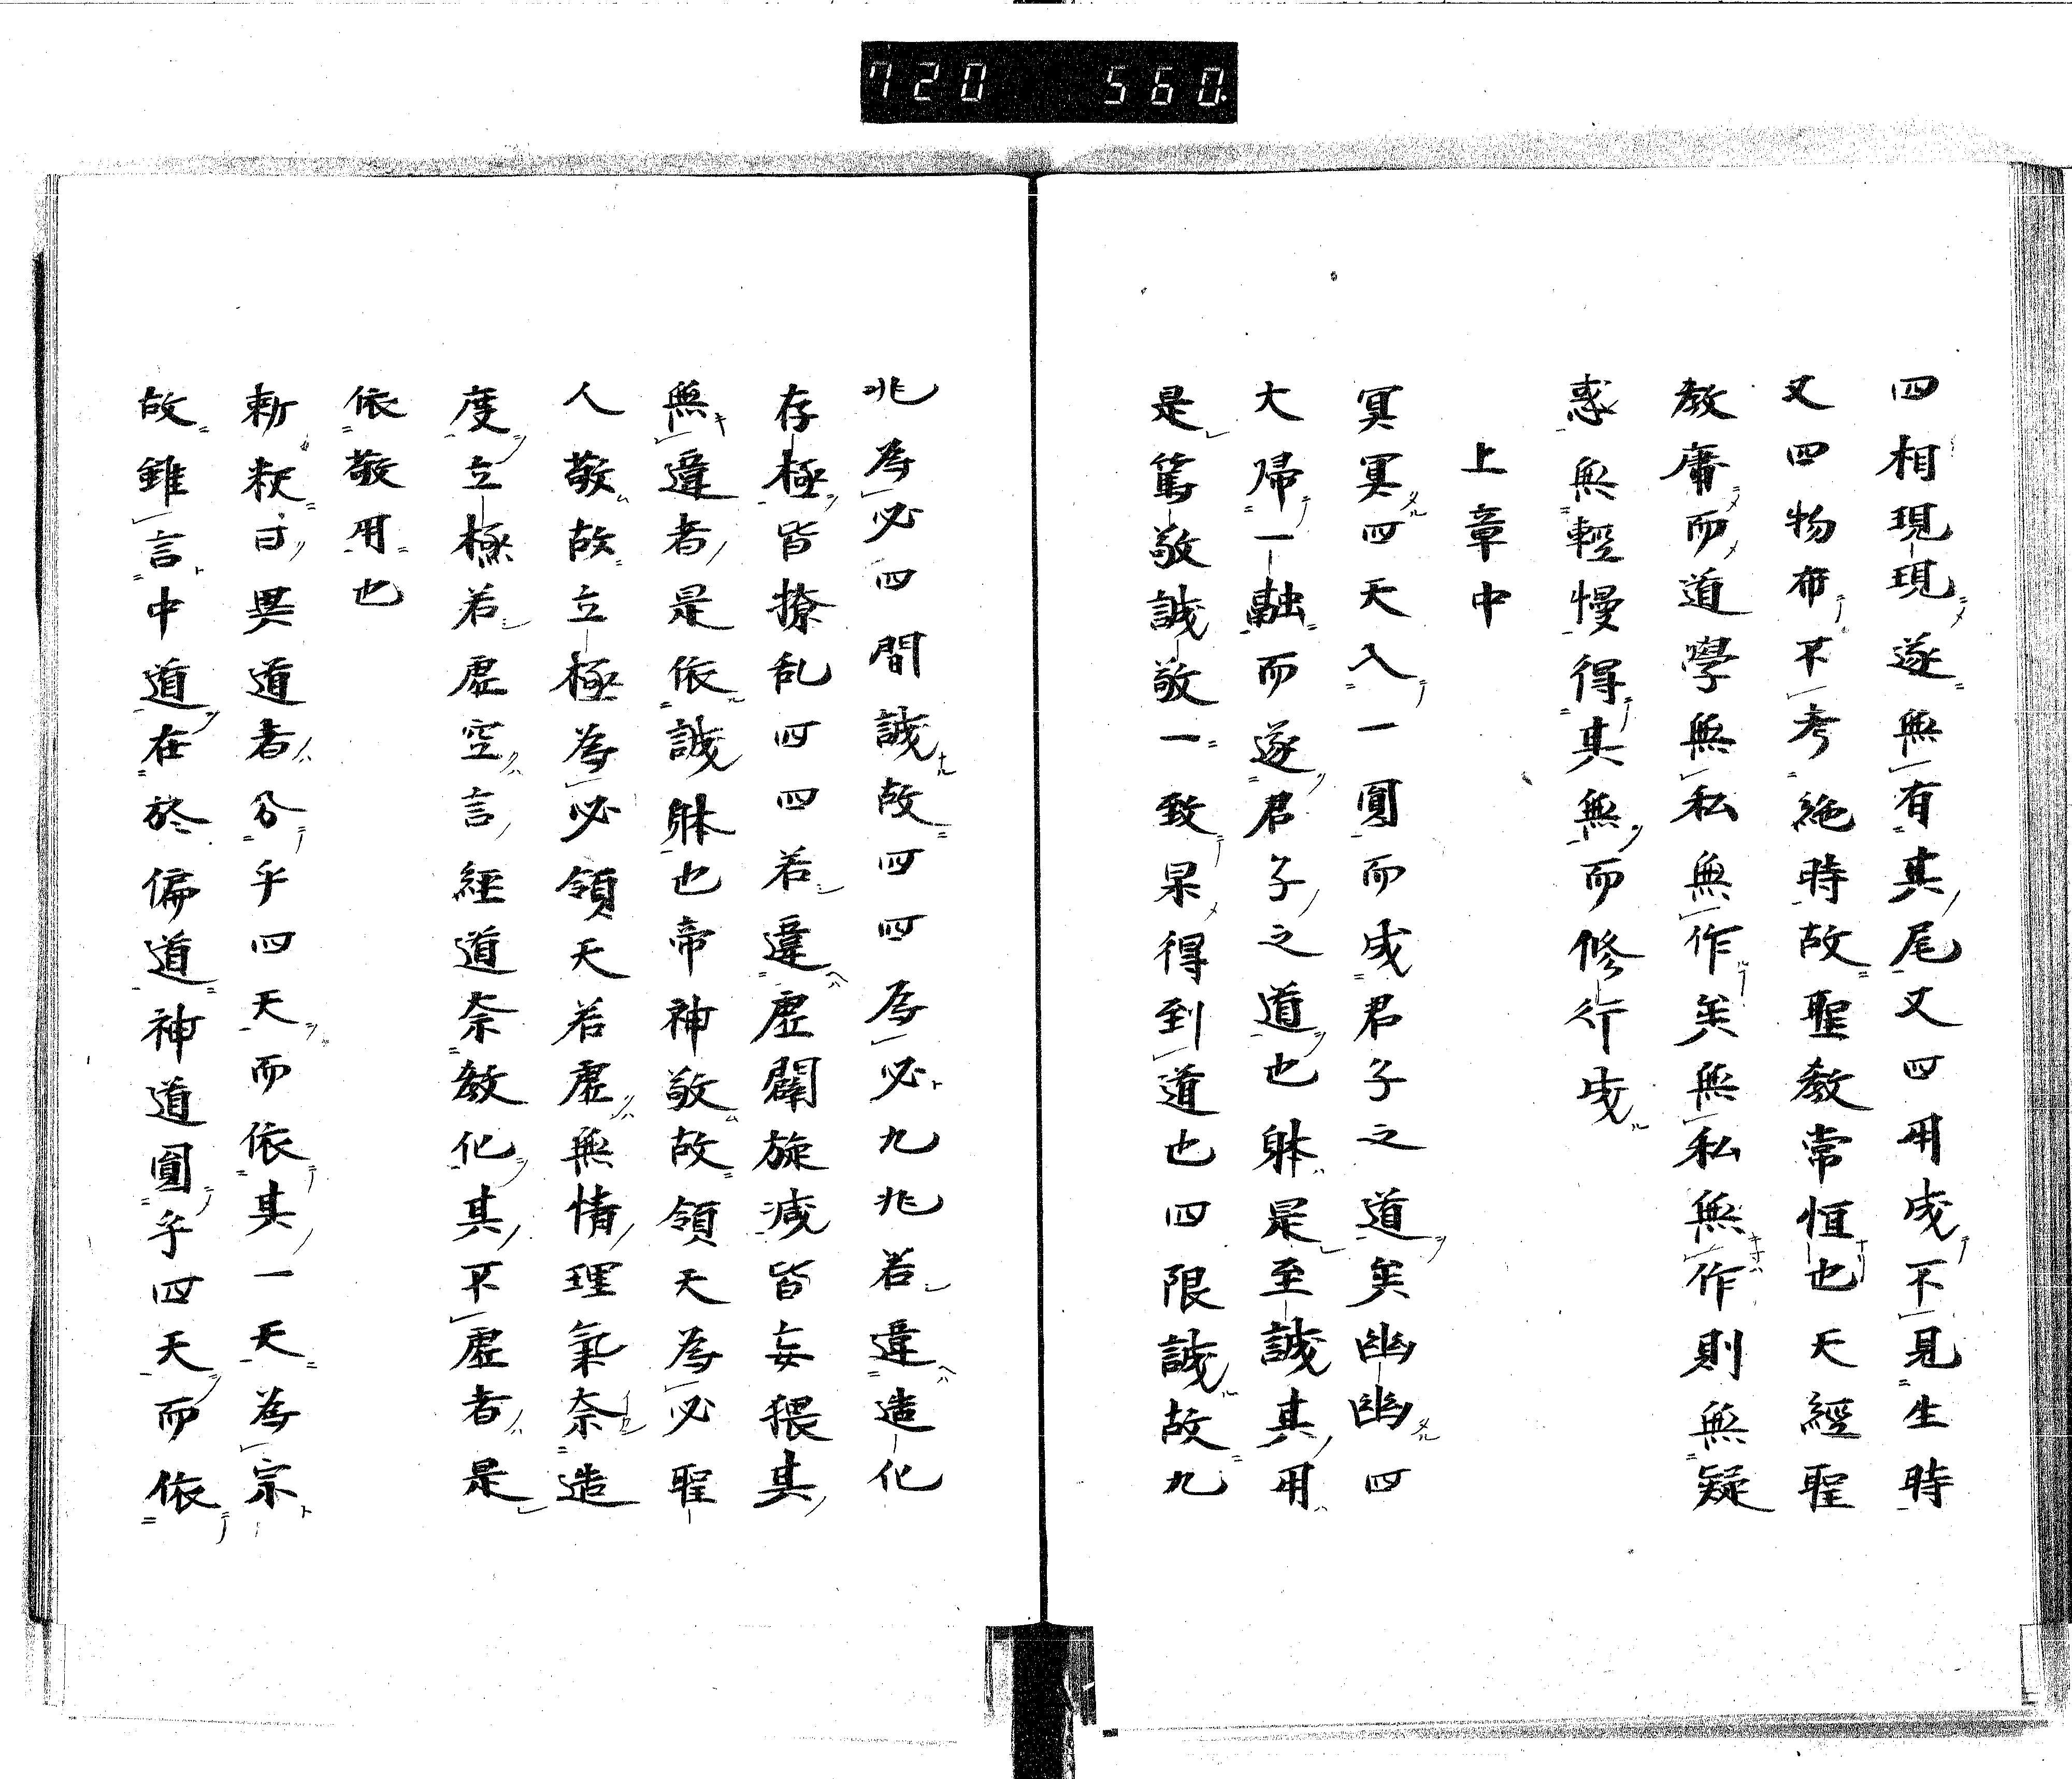 720 560.
四相現現遂無有其尾又四用成不見生時
又四物布不考絶時故聖教常恒也天經聖
教庸而道學無私無作矣無私無作則無疑
惑無輕慢得其無而修行成
上章中
冥冥四天入一圓而成君子之道矣幽幽四
大帰一融而遂君子之道也躰是至誠其用
是篤敬誠敬一致杲得到道也四限誠故九
兆為必四間誠故四四為必九兆若違造化
存極皆撩乱四四若違虚闢旋滅皆妄猥其
無違者是依誠躰也帝神敬故領天為必聖
人敬故立極為必領天若虚無情理氣奈造
度立極若虚空言經道奈教化其不虚者是
依敬用也
異道者分乎四天而依其一天為宗
故雖言中道在於偏道神道圓乎四天而依